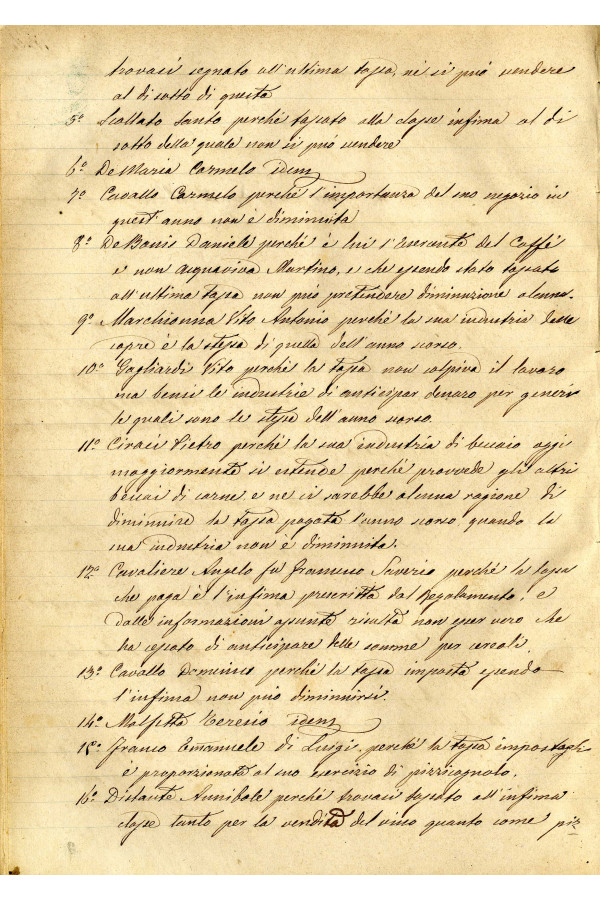 trovasi segnato all'ultima tassa, nè si può vendere
al di sotto di questa
5° Scollato Santo perchè tassato alla classe infima al di
sotto della quale non si può vendere
6° De Maria Carmelo idem
7° Cavallo Carmelo perchè l'importanza del suo negozio in
quest'anno non è diminuita
8° De Bonis Daniele perchè è lui l'esercente del Caffè
e non Acquaviva Martino, e che essendo stato tassato
all'ultima tassa non può pretendere diminuzione alcuna.
9° Marchionna Vito Antonio perchè la sua industria delle
capre è la stessa di quella dell'anno scorso.
10° Gagliardi Vito perchè la tassa non colpiva il lavoro
ma bensì le industrie di anticipar denaro per generi
le quali sono le stesse dell'anno scorso.
11° Ciraci Pietro perchè la sua industria di beccaio oggi
maggiormente si estende perchè provvede gli altri
beccai di carne e ne ci sarebbe alcuna ragione di
diminuire la tassa pagata l'anno scorso, quando la
sua industria non è diminuita.
12° Cavaliere Angelo fu Francesco Saverio perchè la tassa
che paga è l'infima prescritta dal Regolamento, e
dalle informazioni assunte risulta non esser vero che
ha cessato di anticipare delle somme per cereali.
13° Cavallo Domenico perchè la tassa imposta essendo
l'infima non può diminuirsi.
14° Malpetta Teresio idem
15° Franco Emanuele di Luigi, perchè la tassa impostagli
è proporzionata al suo esercizio di pizzicagnolo.
16° Distante Annibale perchè trovasi tassato all'infima
classe tanto per la vendita del vino quanto come piz